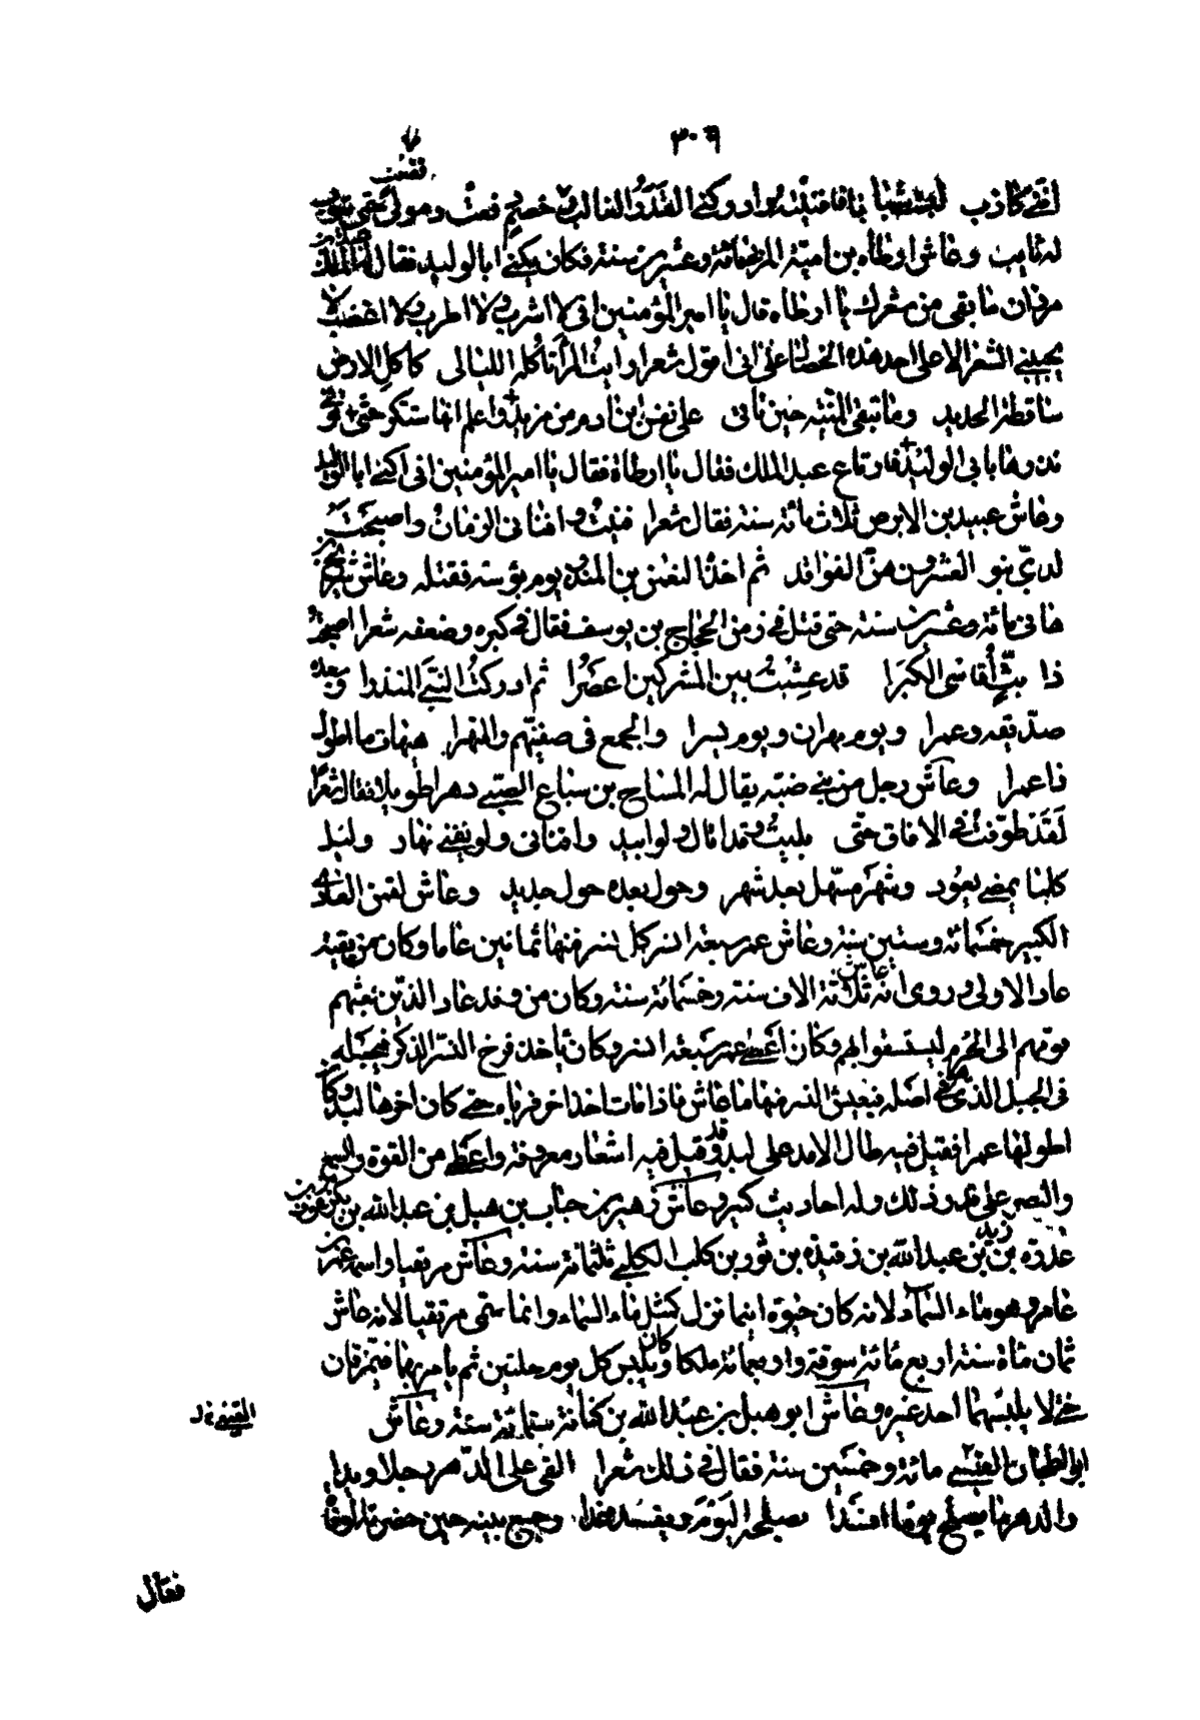 ٣٠٦
فقمت
افنى كاذب لعشنا بوار وكنى القدر الغالب خصيم فمت ومولى حتى
له نايب وعاش ارطاه بن امية المزنى مائة وعشرين سنة فكان يكنى ابا الوليد فقال له عبد الملك
مروان ما بقى من شعرك يا ارطاه قال يا امير المؤمنين انى لا اشرب ولا اطرب ولا اغضب ولا
يجيئنى الشعر الا على احد هذه الخصال على انى اقول شعرا رايت المرء تاكله الليالى كاكل الارض
ساقطة الحديد وما تبقى المنيه حين تاتى على نفس ابن ادم من مزيد واعلم انها ستكر حتى توفى
نذرها بابى الوليد فارتاع عبد الملك فقال يا ارطاة فقال يا امير المؤمنين انى اكنى ابا الوليد
وعاش عبيد بن الابرص ثلاث مائة سنة فقال شعرا فنيت وافنانى الزمان واصبحت
لدى بنو العش وزهر الفراقد ثم اخذ النعمن بن المنذر يوم بؤسه فقتله وعاش شريح بن
هانى مائة وعشرين سنة حتى قتل فى زمن الحجاج بن يوسف فقال فى كبره وضعفه شعرا اصبحت
ذا بث اقاسى الكبرا قد عشت بين المشركين اعصرا ثم ادركت النبى المنذرا وبعده
صديقه وعمرا ويوم مهران ويوم تسترا والجمع فى صفينهم والنهرا هيهات ما اطول
ذا عمرا وعاش رجل من بنى ضبة يقال له المسجاح بن سباع الضبى دهرا طويلا فقال شعرا
لقد طوفت فى الافاق حتى بليت وقد انال ولو ابيد وافنانى ولو يفنى نهار وليل
كلما يمضى يعود وشهر مستهل بعد شهر وحول بعده حول جديد وعاش لقمن العادى
الكبير خمسمائة وستين سنة وعاش عمر سبعة انسر كل نسر منها ثمانين عاما وكان من بقية
عاد الاولى وروى انه عاش ثلاثة الاف سنة وخمسمائة سنة وكان من وفد عاد الذين بعثهم
قومهم الى الحرم ليستسقوا لهم وكان اعطى عمر سبعة انسر وكان ياخذ فرخ النسر الذكر فيجعله
فى الجبل الذى هو فى اصله فيعيش النسر منها ما عاش فاذا مات اخذ اخر فرباه حتى كان اخرها لبد وكان
اطولها عمرا فقيل فيه طال الامد على لبد وقد قيل فيه اشعار معروفة واعطى من القوة والسمع
والبصر على قدر ذلك وله احاديث كثيرة وعاش زهير بن جناب بن هبل بن عبد الله بن بكر بن عوف بن
عذرة بن زيد بن عبد الله بن رفيدة بن ثور بن كلب الكلبى ثلثمائة سنة وعاش مزيقيا واسمه عمر بن
عامر وهو ماء السماء لانه كان حيوة اينما نزل كمثل ماء السماء وانما سمى مزيقيا لانه عاش
ثمان مائة سنة اربع مائة سوقة واربعمائة ملكا وكان يلبس كل يوم حلتين ثم يامر بهما فيمزقان
حتى لا يلبسهما احد غيره وعاش ابو هبل بن عبد الله بن كنانة ستمائة سنة وعاش
القينى خ ل
ابو الطمحان القيسى مائة وخمسين سنة فقال فى ذلك شعرا القى على الدهر رجلا ويدا
والدهر ما يصلح يوما افسدا يصلحه اليوم ويفسده غدا وجمع بنيه حين حضرته الوفاة
فقال